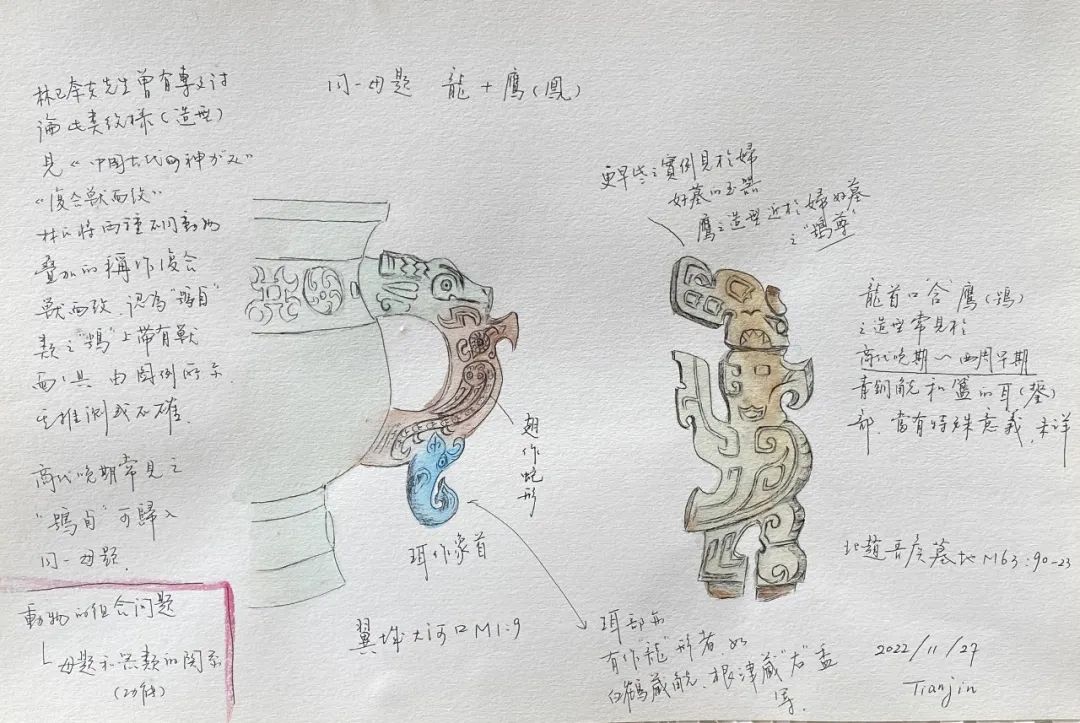 同一母题 龍+鷹(鳳)
林巳奈夫先生曾有專文討
論此类纹樣(造型)
見《中国古代の神がみ》
"復合獸面纹"
林氏将两種不同動物
叠加的稱作復合
獸面纹.認為"鴞卣"
类之"鴞"上带有獸
面具.由图例所示.
先推測或不確.
商代晚期常見之
"鴞卣"可歸入
同一母题.
動物的组合问题
母题和器類的関系
(功能)
更早些之實例見於婦
好墓的玉器
鷹之造型近於婦好墓
之"鴞尊"
翅作蛇形
珥作象首
翼城大河口M1:9
龍首口含鷹(鴞)
之造型常見於
商代晚期~西周早期
青铜觥和簋的耳(鋬)
部.當有特殊意義.未详
北趙晋侯墓地M63:90-23
珥部亦
有作龍形者.如
白鶴藏觥.根津藏"右"盉
等.
2022/11/27
Tianjin